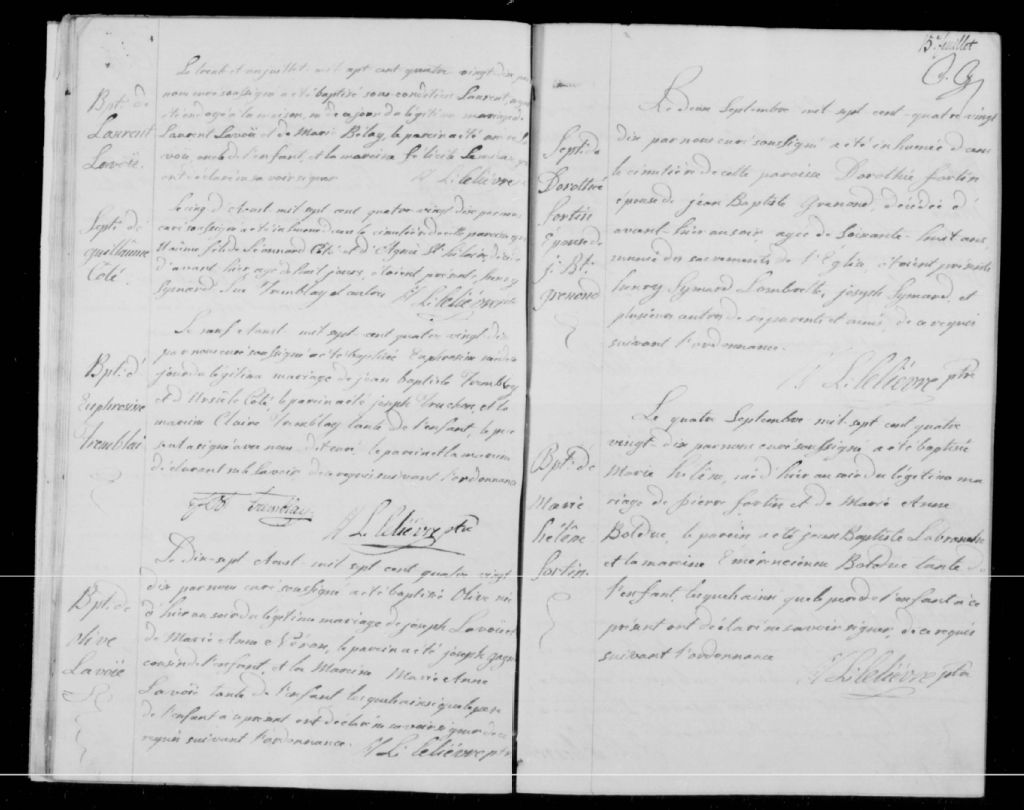 Bpt. de
Laurent
Lavoïe.
Le trente et un juillet mil sept cent quatre vingt dix par
nous curé soussigné a été baptisé sous condition Laurent,
à la maison, né de ce jour du légitime mariage de
Laurent Lavoïe et de Marie Bélay, le parein a été
voïe, oncle de l'enfant, et la mareine félicité
ont déclaré ne savoir signer
L. Lelièvre
Sept. de
guillaume
Côté.
Le cinq d'Aoust mil sept cent quatre vingt dix par nous
curé soussigné a été inhumé dans le cimetière de cette paroisse
fils de Léonnard Côté et d' St hilaire, décédé
d'avant hier, agé de huit jours, étaient présent, henry
Symard, Tremblay et autres L. Lelièvre ptre
Bpt. d'
Euphrosine
Tremblai
Le neuf d'Aoust mil sept cent quatre vingt dix
par nous curé soussigné a été baptisée Euphrosine née de ce
jour du légitime mariage de jean baptiste Tremblay
et d'Ursule Côté, le parein a été joseph Truchon, et la
mareine Claire Tremblay tante de l'enfant, le père
a signé avec nous dit curé, le parein et la mareine
déclarent ne le savoir de ce requis suivant l'ordonnance
Tremblay
L. Lelièvre ptre
Bpt. de
olive
Lavoïe
Le dix-sept Aoust mil sept cent quatre vingt
dix par nous curé soussigné a été baptisé Olive née
d'hier au soir du légitime mariage de joseph Lavoïe et
de Marie Anne, le parein a été joseph gagné
cousin de l'enfant, et la Mareine Marie Anne
Lavoïe tante de l'enfant lesquels ainsi que le père
de l'enfant a ce présent ont déclaré ne savoir signer de ce
requis suivant l'ordonnance. L. Lelièvre ptre
15e. feuillet
Sept. de
Dorothée
fortin
Epouse de
j. Bt.
grenond
Le deux Septembre mil sept cent quatre vingt
dix par nous curé soussigné a été inhumée dans
le cimetière de cette paroisse Dorothée fortin
épouse de jean Baptiste Grenond, décédée d'
avant hier au soir, agée de soixante-huit ans,
munie des sacrements de l'Eglise, étaient présents
henry Symard Lombrette, joseph Symard, et
plusieurs autres de ses parents et amis, de ce requis
suivant l'ordonnance.
L. Lelièvre ptre
Bpt. de
Marie
hélène
fortin.
Le quatre Septembre mil sept cent quatre
vingt-dix par nous curé soussigné a été baptisé
Marie hélène, née d'hier au soir du légitime ma
riage de pierre fortin et de Marie Anne
Bolduc, le parein a été jean Baptiste Labranche
et la mareine Emérencienne Bolduc tante de
l'enfant, lesquels ainsi que le père de l'enfant a ce
présent ont déclaré ne savoir signer, de ce requis
suivant l'ordonnance
L. Lelièvre ptre